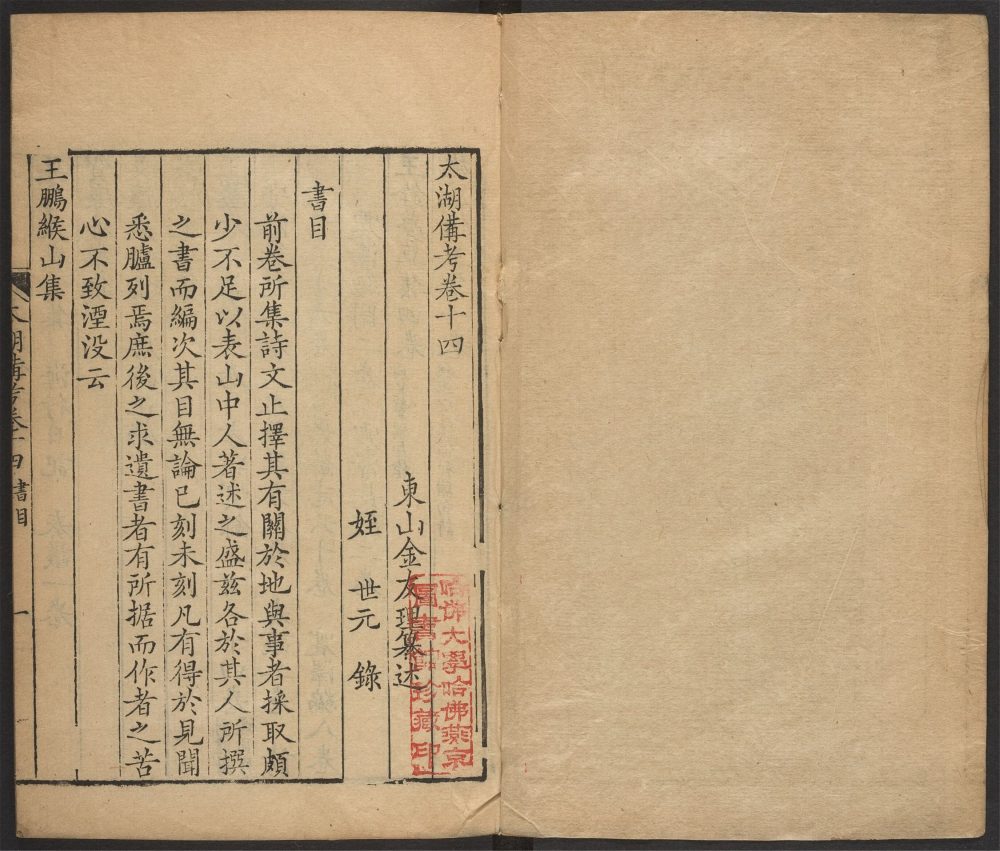 太湖備考卷十四
東山金友理纂述
姪世元錄
書目
前卷所集詩文止擇其有關於地與事者採取頗
少不足以表山中人著述之盛茲各於其人所撰
之書而編次其目無論已刻未刻凡有得於見聞
悉臚列焉庶後之求遺書者有所据而作者之苦
心不致湮没云
王鵬緱山集
太湖備考卷十四 書目 一
哈佛大學哈佛燕京
圖書館珍藏印